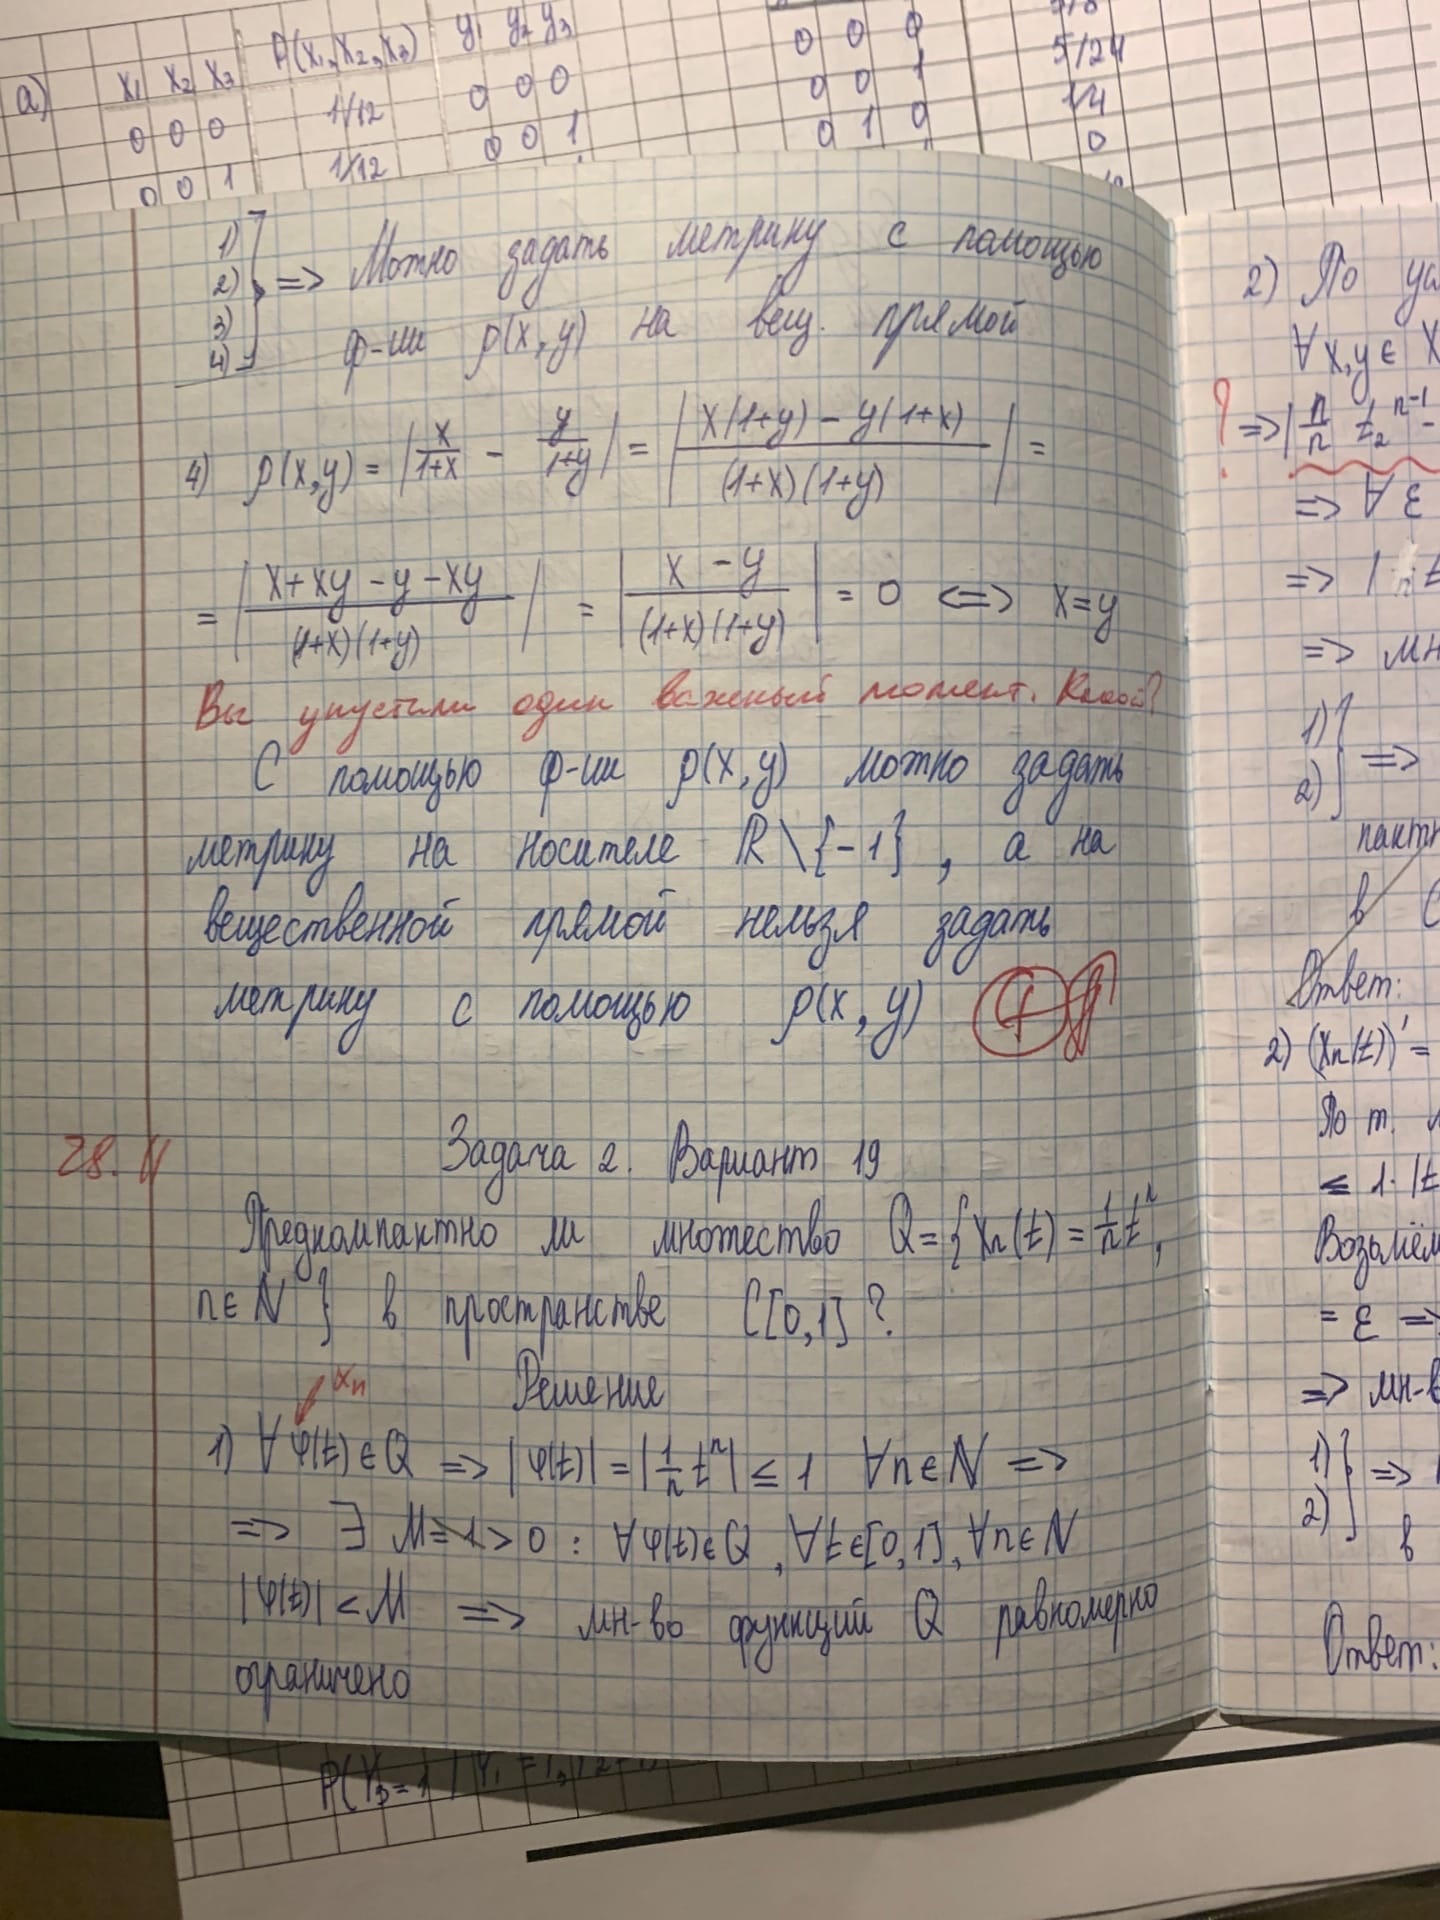 a)
x₁ x₂ x₃ P(x₁,x₂,x₃) y₁ y₂ y₃
0 0 0 1/12 0 0 0
0 0 1 1/12 0 0 1
0 0 0 5/24
0 0 1 1/4
0 1 0 0
1)
2)
3)
4) => Можно задать метрику с помощью
ф-ии ρ(x,y) на вещ. прямой
4) ρ(x,y) = |x/(1+x) - y/(1+y)| = |(x(1+y) - y(1+x))/((1+x)(1+y))| =
= |(x+xy-y-xy)/((1+x)(1+y))| = |(x-y)/((1+x)(1+y))| = 0 <=> x=y
Вы упустили один важный момент. Какой?
С помощью ф-ии ρ(x,y) можно задать
метрику на носителе ℝ\{-1}, а на
вещественной прямой нельзя задать
метрику с помощью ρ(x,y)
28. N
Задача 2. Вариант 19
Предкомпактно ли множество Q={xₙ(t) = 1/n tⁿ,
n∈N} в пространстве C[0,1]?
Решение
xₙ
1) ∀ φ(t)∈Q => |φ(t)| = |1/n tⁿ| ≤ 1 ∀n∈N =>
=> ∃ M=1>0 : ∀φ(t)∈Q, ∀t∈[0,1], ∀n∈N
|φ(t)| < M => мн-во функций Q равномерно
ограничено
2) По
∀x,y∈ X
? => |n/n t₂ⁿ⁻¹ -
=> ∀ ε
=>
=>
1)
2) =>
в
Ответ:
2) (xₙ(t))' =
По т.
≤ 1·|t
Возьмём
= ε =>
=> мн-в
1)
2) =>
в
Ответ: